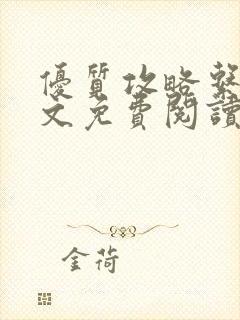 優質攻略繫
文免費閱讀
金荷